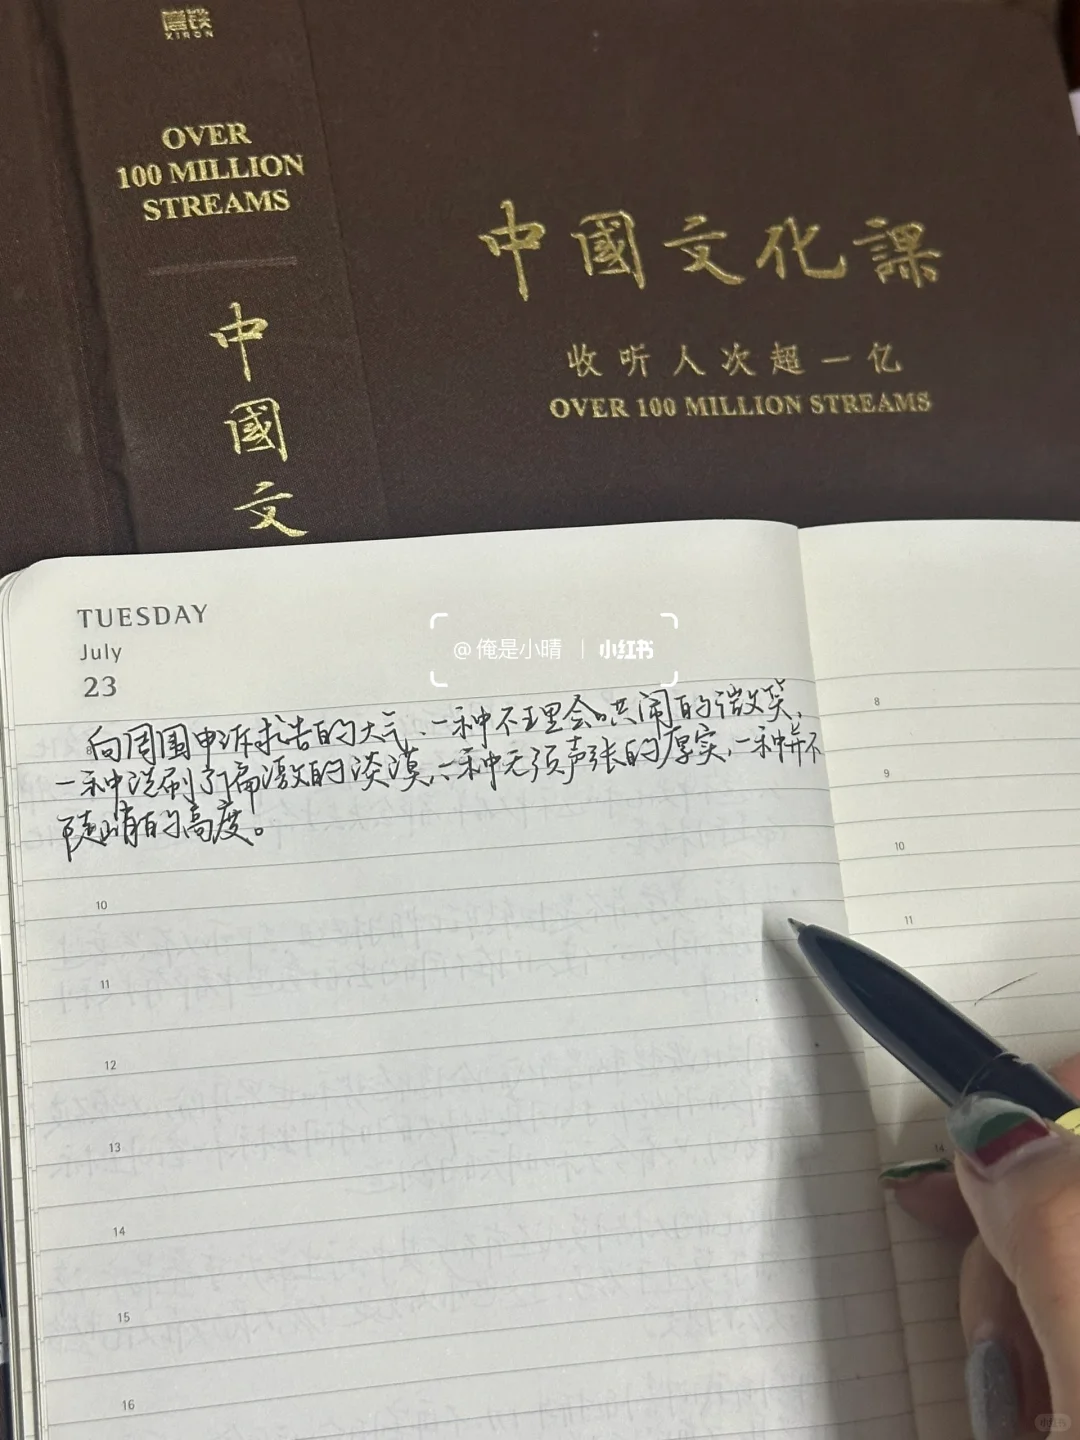 磨铁
XIRON
OVER
100 MILLION
STREAMS
中
國
文
中國文化課
收听人次超一亿
OVER 100 MILLION STREAMS
TUESDAY
July
23
@俺是小晴 | 小红书
向周围申诉求告的大气、一种不理会哄闹的微笑,
一种洗刷了偏激的淡漠,一种无须声张的厚实,一种并不
陡峭的高度。
10
11
12
13
14
15
16
8
9
10
11
14
小红书